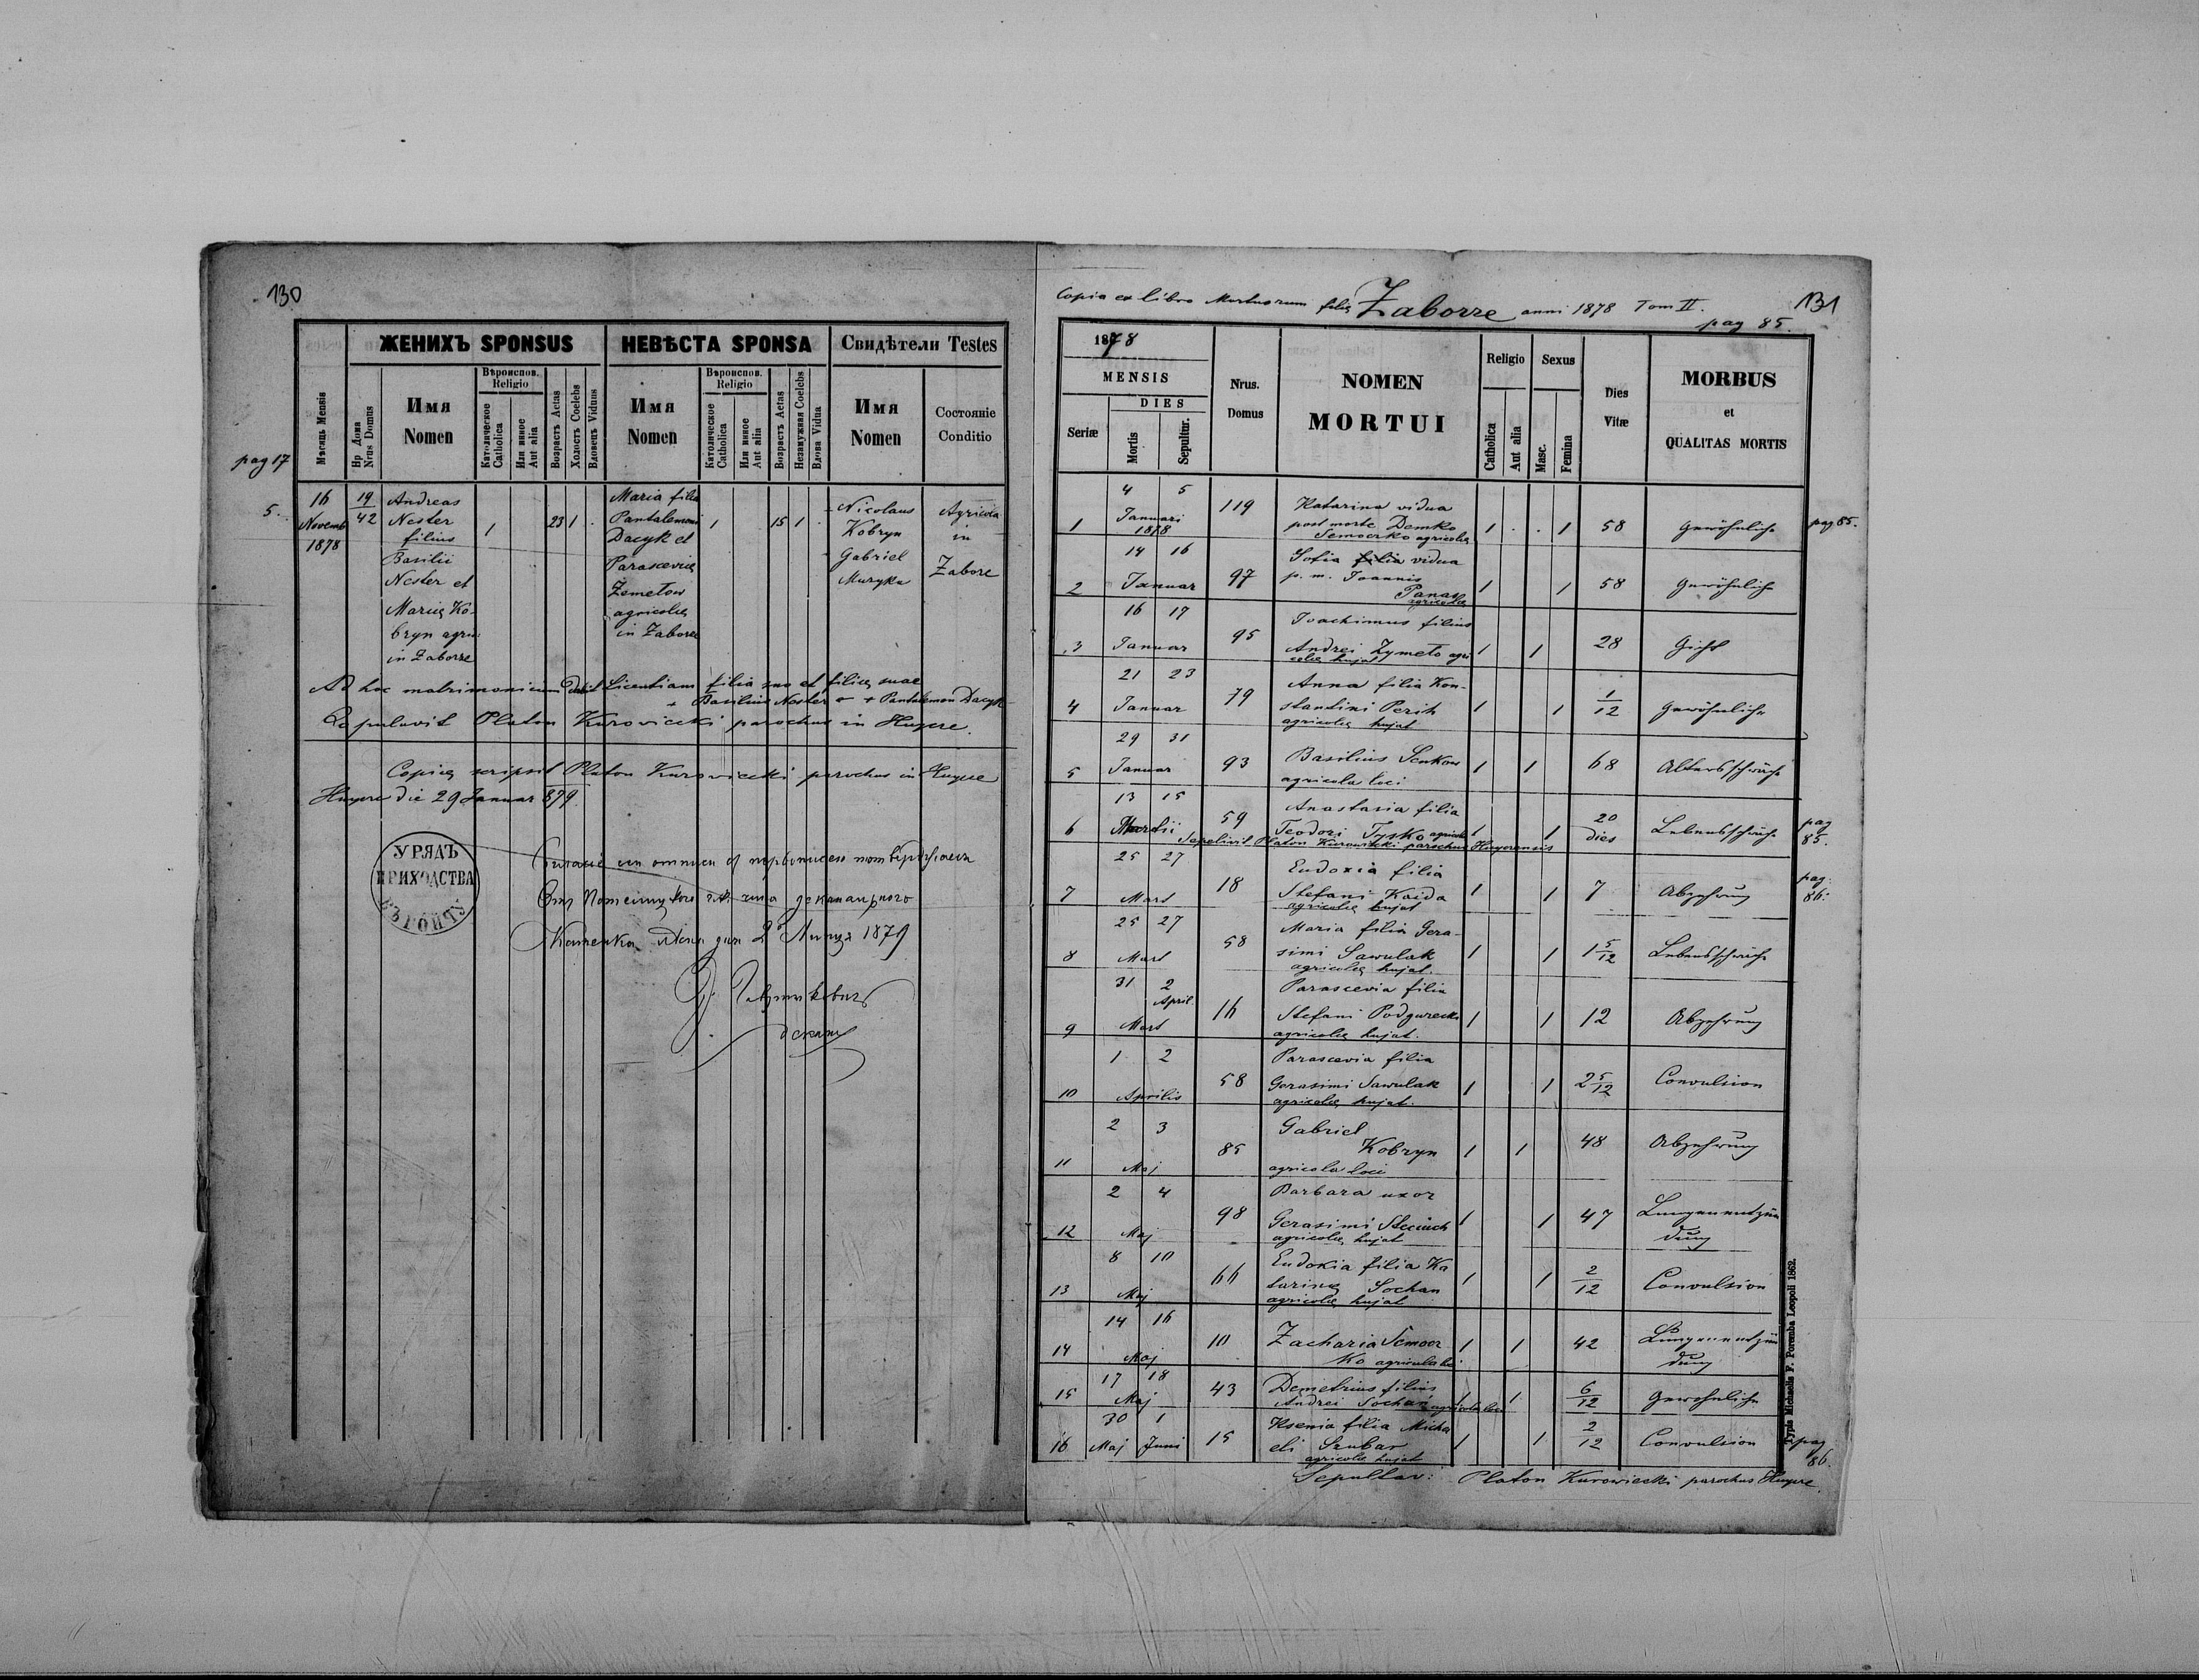 130
ЖЕНИХЪ SPONSUS
НЕВѢСТА SPONSA
Свидѣтели Testes
Мѣсяць Mensis
Нр Дома Nrus Domus
Имя Nomen
Вѣроиспов. Religio
Католическое Catholica
Или иное Aut alia
Возрастъ Aetas
Холостъ Coelebs
Вдовецъ Viduus
Имя Nomen
Вѣроиспов. Religio
Католическое Catholica
Или иное Aut alia
Возрастъ Aetas
Незамужняя Coelebs
Вдова Vidua
Имя Nomen
Состояніе Conditio
pag 17
5.
16 Novemb 1878
19/42
Andreas
Nester
filius
Basilii
Nester et
Marię Ko-
bryn agric
in Zaborze
1
23
1
Maria filia
Pantalemoni
Dacyk et
Parascevię
Zemetow
agricolę
in Zaborze
1
15
1
Nicolaus
Kobryn
Gabriel
Muzyka
Agricola
in
Zabore
Ad hoc matrimonium dedit Licentiam filio suo et filię suae
+ Basilius Nester + Pantalemon Dacyk
Copulavit Platon Kurowiecki parochus in Hujcze.
Copię scripsit Platon Kurowiecki parochus in Hujcze
Hujcze die 29 Januar 879.
УРЯДЪ
ПРИХОДСТВА
Каменка дня 2 Липця 1879
деканъ
Copia ex libro Mortuorum filię Zaborze anni 1878 Tom II.
pag 85.
131
1878
MENSIS
DIES
Seriæ
Mortis
Sepultur.
Nrus. Domus
NOMEN
MORTUI
Religio
Catholica
Aut alia
Sexus
Masc.
Femina
Dies Vitæ
MORBUS
et
QUALITAS MORTIS
1 4 5 Januari 1878 119 Katarina vidua post morte Demko Semoczko agricolę 1 . . 1 58 Gewöhnliche pag 85.
2 14 16 Januar 97 Sofia filia vidua p. m. Joannis Panas agricolę 1 1 58 Gewöhnlich
3 16 17 Januar 95 Joachimus filius Andrei Zymeto agricolę hujat 1 1 28 Gicht
4 21 23 Januar 79 Anna filia Konstantini Perih agricolę hujat 1 1 1/12 Gewöhnliche
5 29 31 Januar 93 Basilius Senkow agricola loci 1 1 68 Altersschwäche
6 13 15 Martii 59 Anastasia filia Teodori Tysko agricolę 1 1 20 dies Lebensschwäche pag 85.
Sepelivit Platon Kurowiecki parochus Hujczensis
7 25 27 Mart 18 Eudoxia filia Stefani Kaida agricolę hujat 1 1 7 Abzehrung pag. 86.
8 25 27 Mart 58 Maria filia Gerasimi Sawulak agricolę hujat. 1 1 1 5/12 Lebensschwäche
9 31 2 April. Mart 16 Parascevia filia Stefani Podgurecki agricolę hujat. 1 1 12 Abzehrung
10 1 2 Aprilis 58 Parascevia filia Gerasimi Sawulak agricolę hujat. 1 1 2 5/12 Convulsion
11 2 3 Maj 85 Gabriel Kobryn agricola loci 1 1 48 Abzehrung
12 2 4 Maj 98 Barbara uxor Gerasimi Steciuch agricolę hujat 1 1 47 Lungenentzündung
13 8 10 Maj 66 Eudokia filia Katarinę Sochan agricolę hujat 1 1 2/12 Convulsion
14 14 16 Maj 10 Zacharia Semoczko agricola loci 1 1 42 Lungenentzündung
15 17 18 Maj 43 Demetrius filius Andrei Sochan agricola loci 1 1 6/12 Gewohnliche
16 30 1 Maj Juni 15 Ksenia filia Michaeli Szubar agricolę hujat 1 1 2/12 Convulsion pag 86.
Sepultav: Platon Kurowiecki parochus Hujcze.
Typis Michaelis F. Poremba Leopoli 1862.